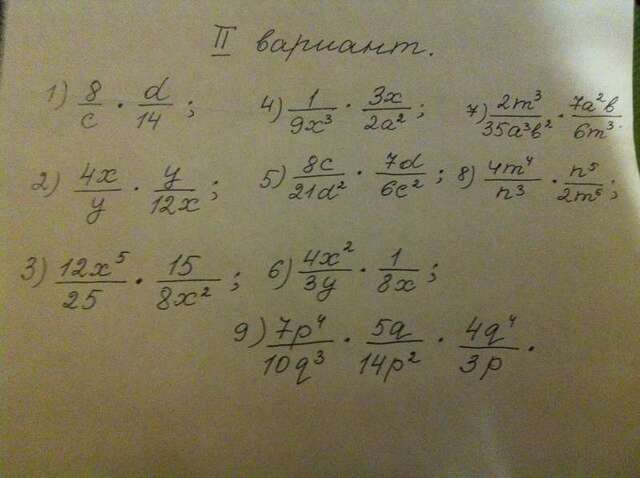 II вариант.
1) 8/c · d/14 ;
4) 1/9x³ · 3x/2a² ;
7) 2m³/35a³b² · 7a²b/6m³ .
2) 4x/y · y/12x ;
5) 8c/21d² · 7d/6c² ;
8) 4m⁴/n³ · n⁵/2m⁶ ;
3) 12x⁵/25 · 15/8x² ;
6) 4x²/3y · 1/8x ;
9) 7p⁴/10q³ · 5q/14p² · 4q⁴/3p .